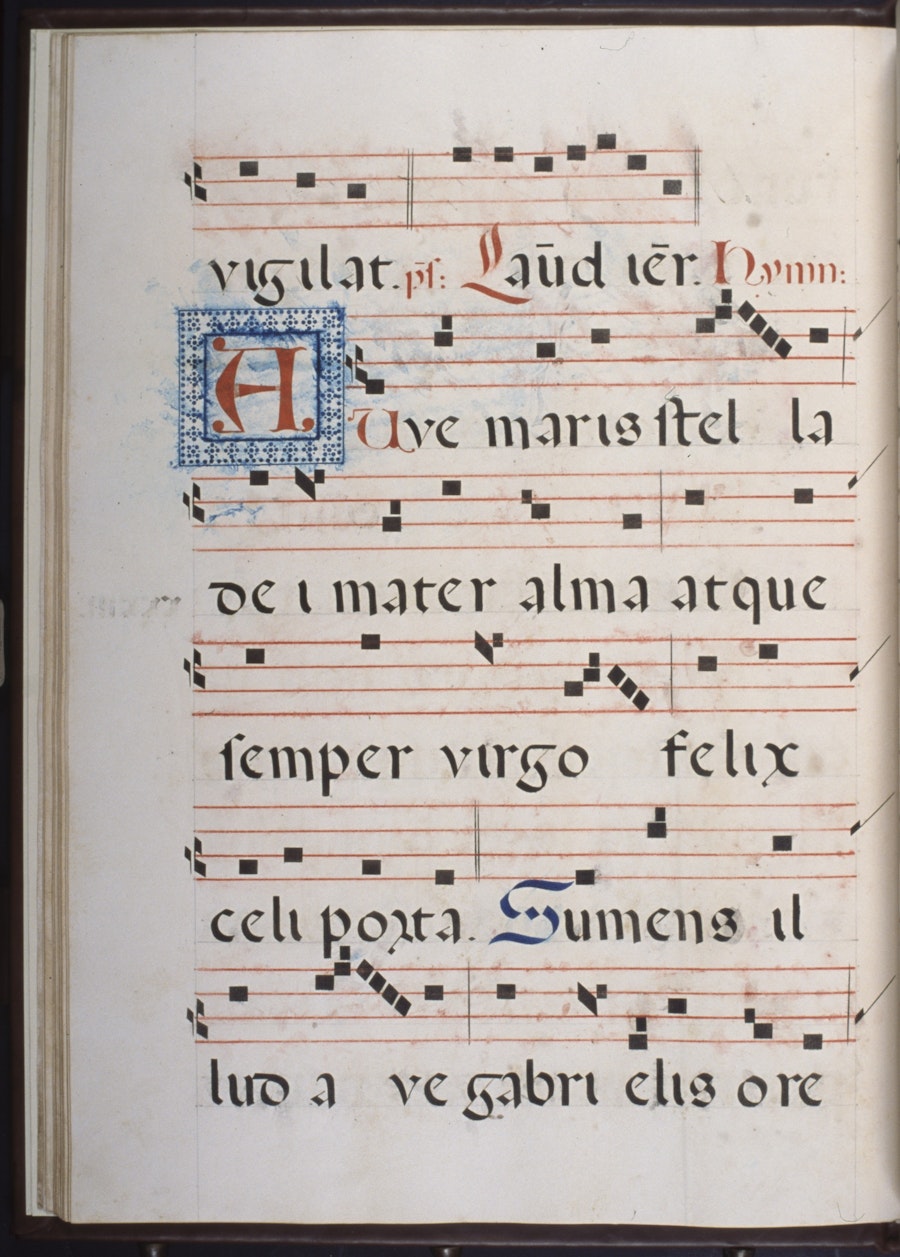 vigilat. ps̄: Laūd iēr. Hymn:
A Uve maris stel la
de i mater alma atque
semper virgo felix
celi porta. Sumens il
lud a ve gabri elis ore